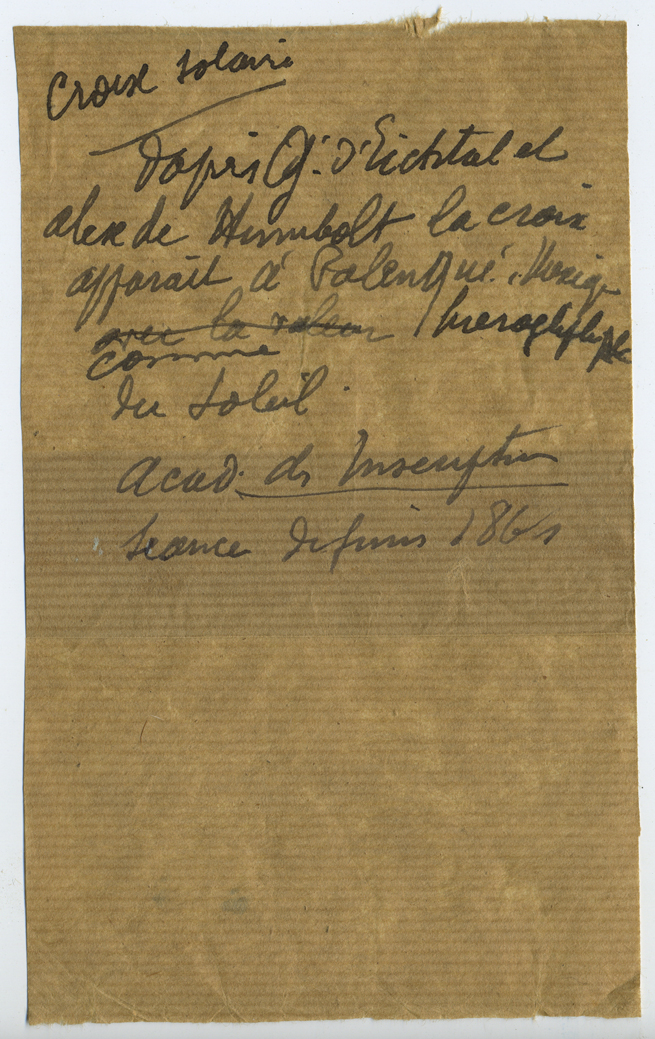 Croix Solaire
D'après G. d'Eichtal et
alex de Humbolt la croix
apparait à Palenqué. Mexiq
avec la valeur hieroglyphique
comme
du Soleil.
Acad. des Inscription
Seance de juin